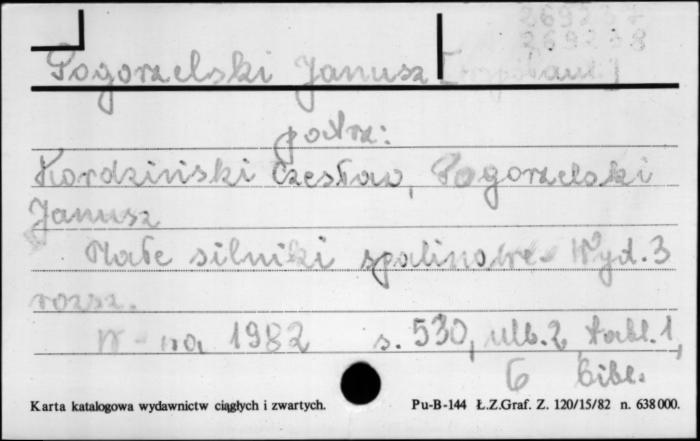 269237
269238
Pogorzelski Janusz [współaut.]
patrz:
Kordziński Czesław, Pogorzelski
Janusz
Małe silniki spalinowe. Wyd. 3
rozsz.
W-wa 1982 s. 530, ulb. 2, tabl. 1,
6 bibl.
Karta katalogowa wydawnictw ciągłych i zwartych. Pu-B-144 Ł.Z.Graf. Z. 120/15/82 n. 638000.